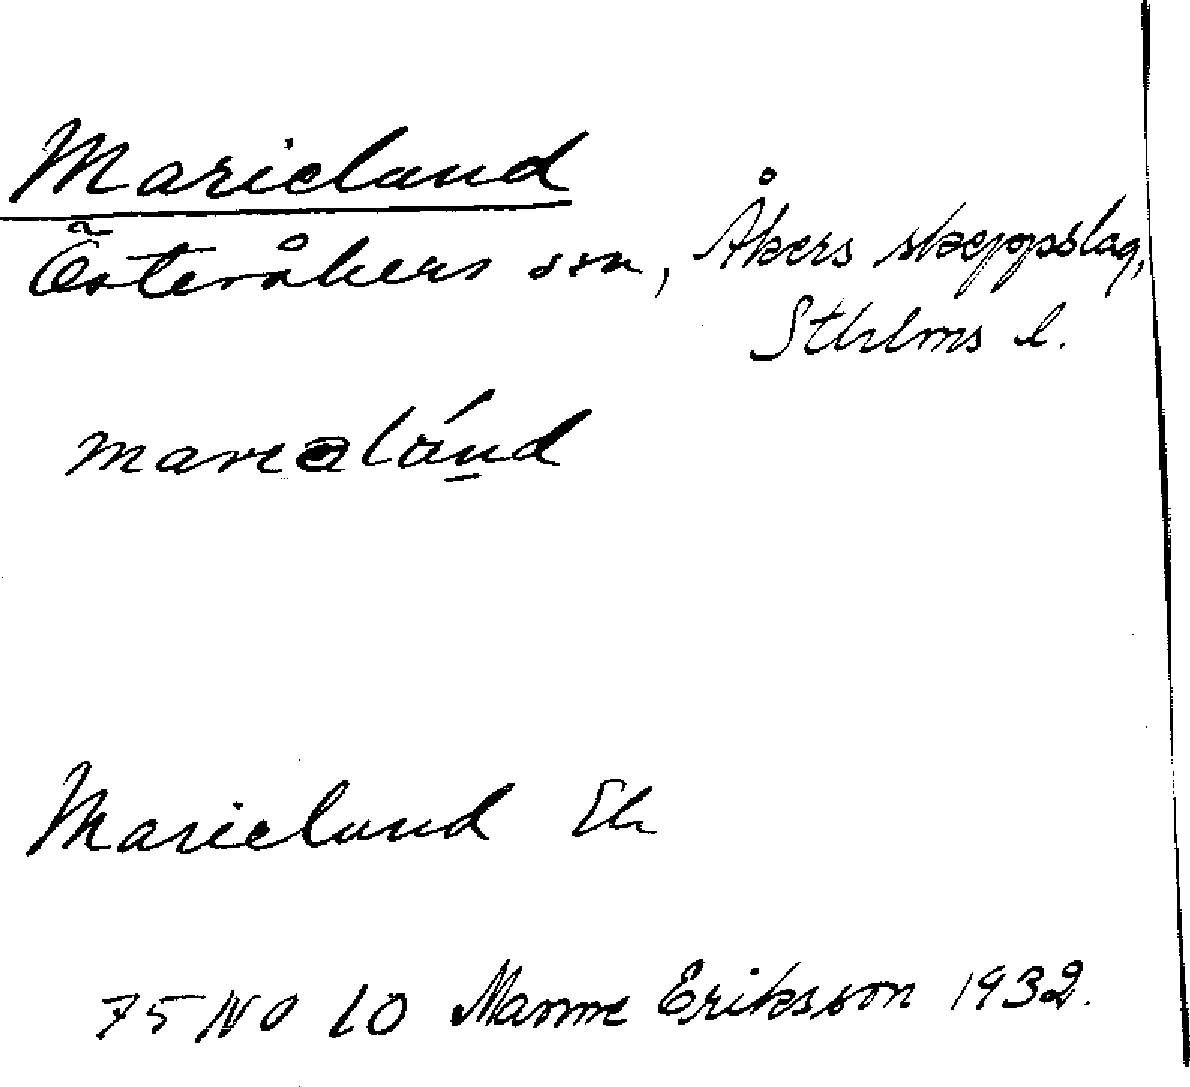 Marieland
Österåkers sn, Åkers skeppslag,
Sthlms l.
mareeland
Marielund Ek
75 NO 10 Manne Eriksson 1932.